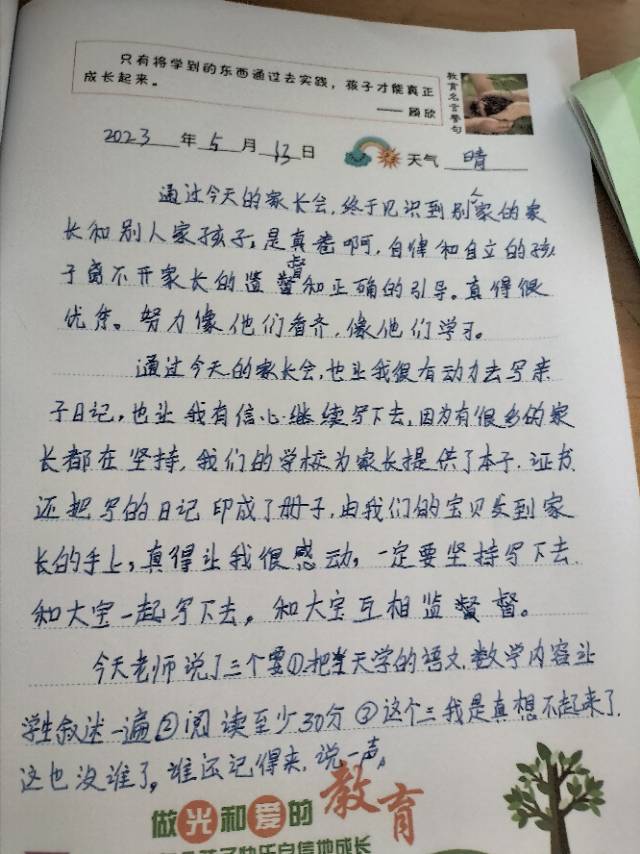 只有将学到的东西通过去实践，孩子才能真正
成长起来。
—— 顾欣
教育名言警句
2023 年 5 月 13 日
天气 晴
通过今天的家长会，终于见识到别人家的家
长和别人家孩子，是真卷啊，自律和自立的孩
子离不开家长的监督和正确的引导。真得很
优秀。努力像他们看齐，像他们学习。
通过今天的家长会，也让我很有动力去写亲
子日记，也让我有信心继续写下去，因为有很多的家
长都在坚持，我们的学校为家长提供了本子、证书
还把写的日记印成了册子，由我们的宝贝发到家
长的手上，真得让我很感动，一定要坚持写下去，
和大宝一起写下去，和大宝互相监督。
今天老师说了三个要①把当天学的语文、数学内容让
学生叙述一遍②阅读至少30分③这个三我是真想不起来了，
这也没谁了，谁还记得来，说一声。
做光和爱的教育
快乐自信地成长